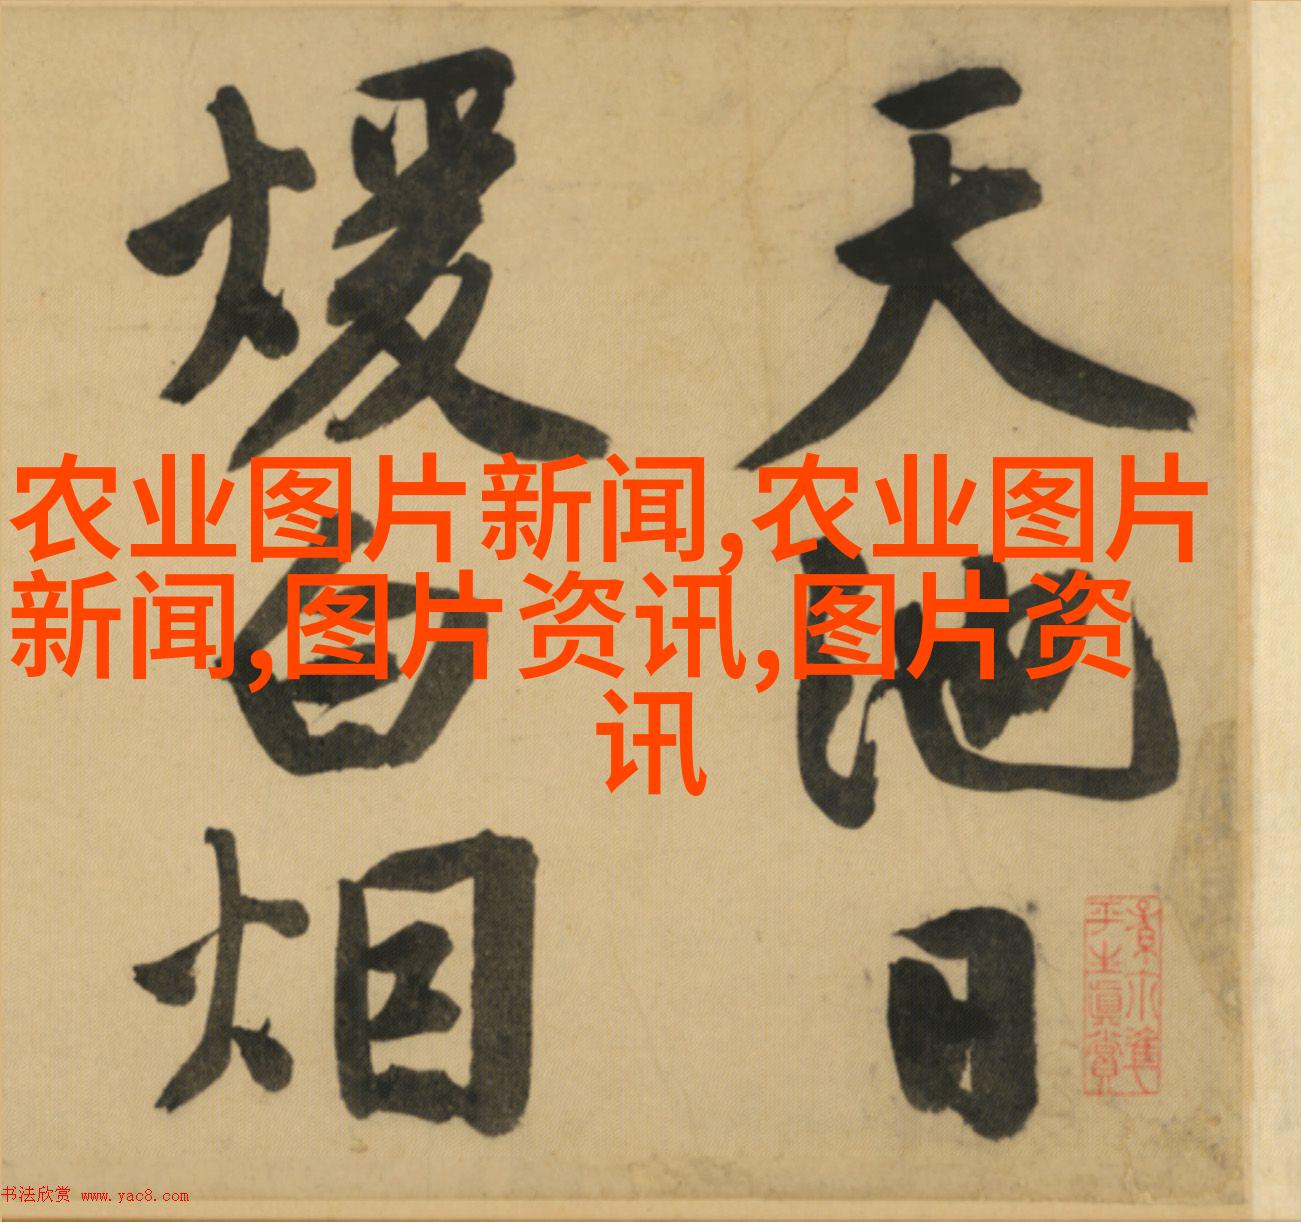 天池日
煖白烟
农业图片新闻,农业图片
新闻,图片资讯,图片资
讯
平生真賞
书法欣赏 www.yac8.com